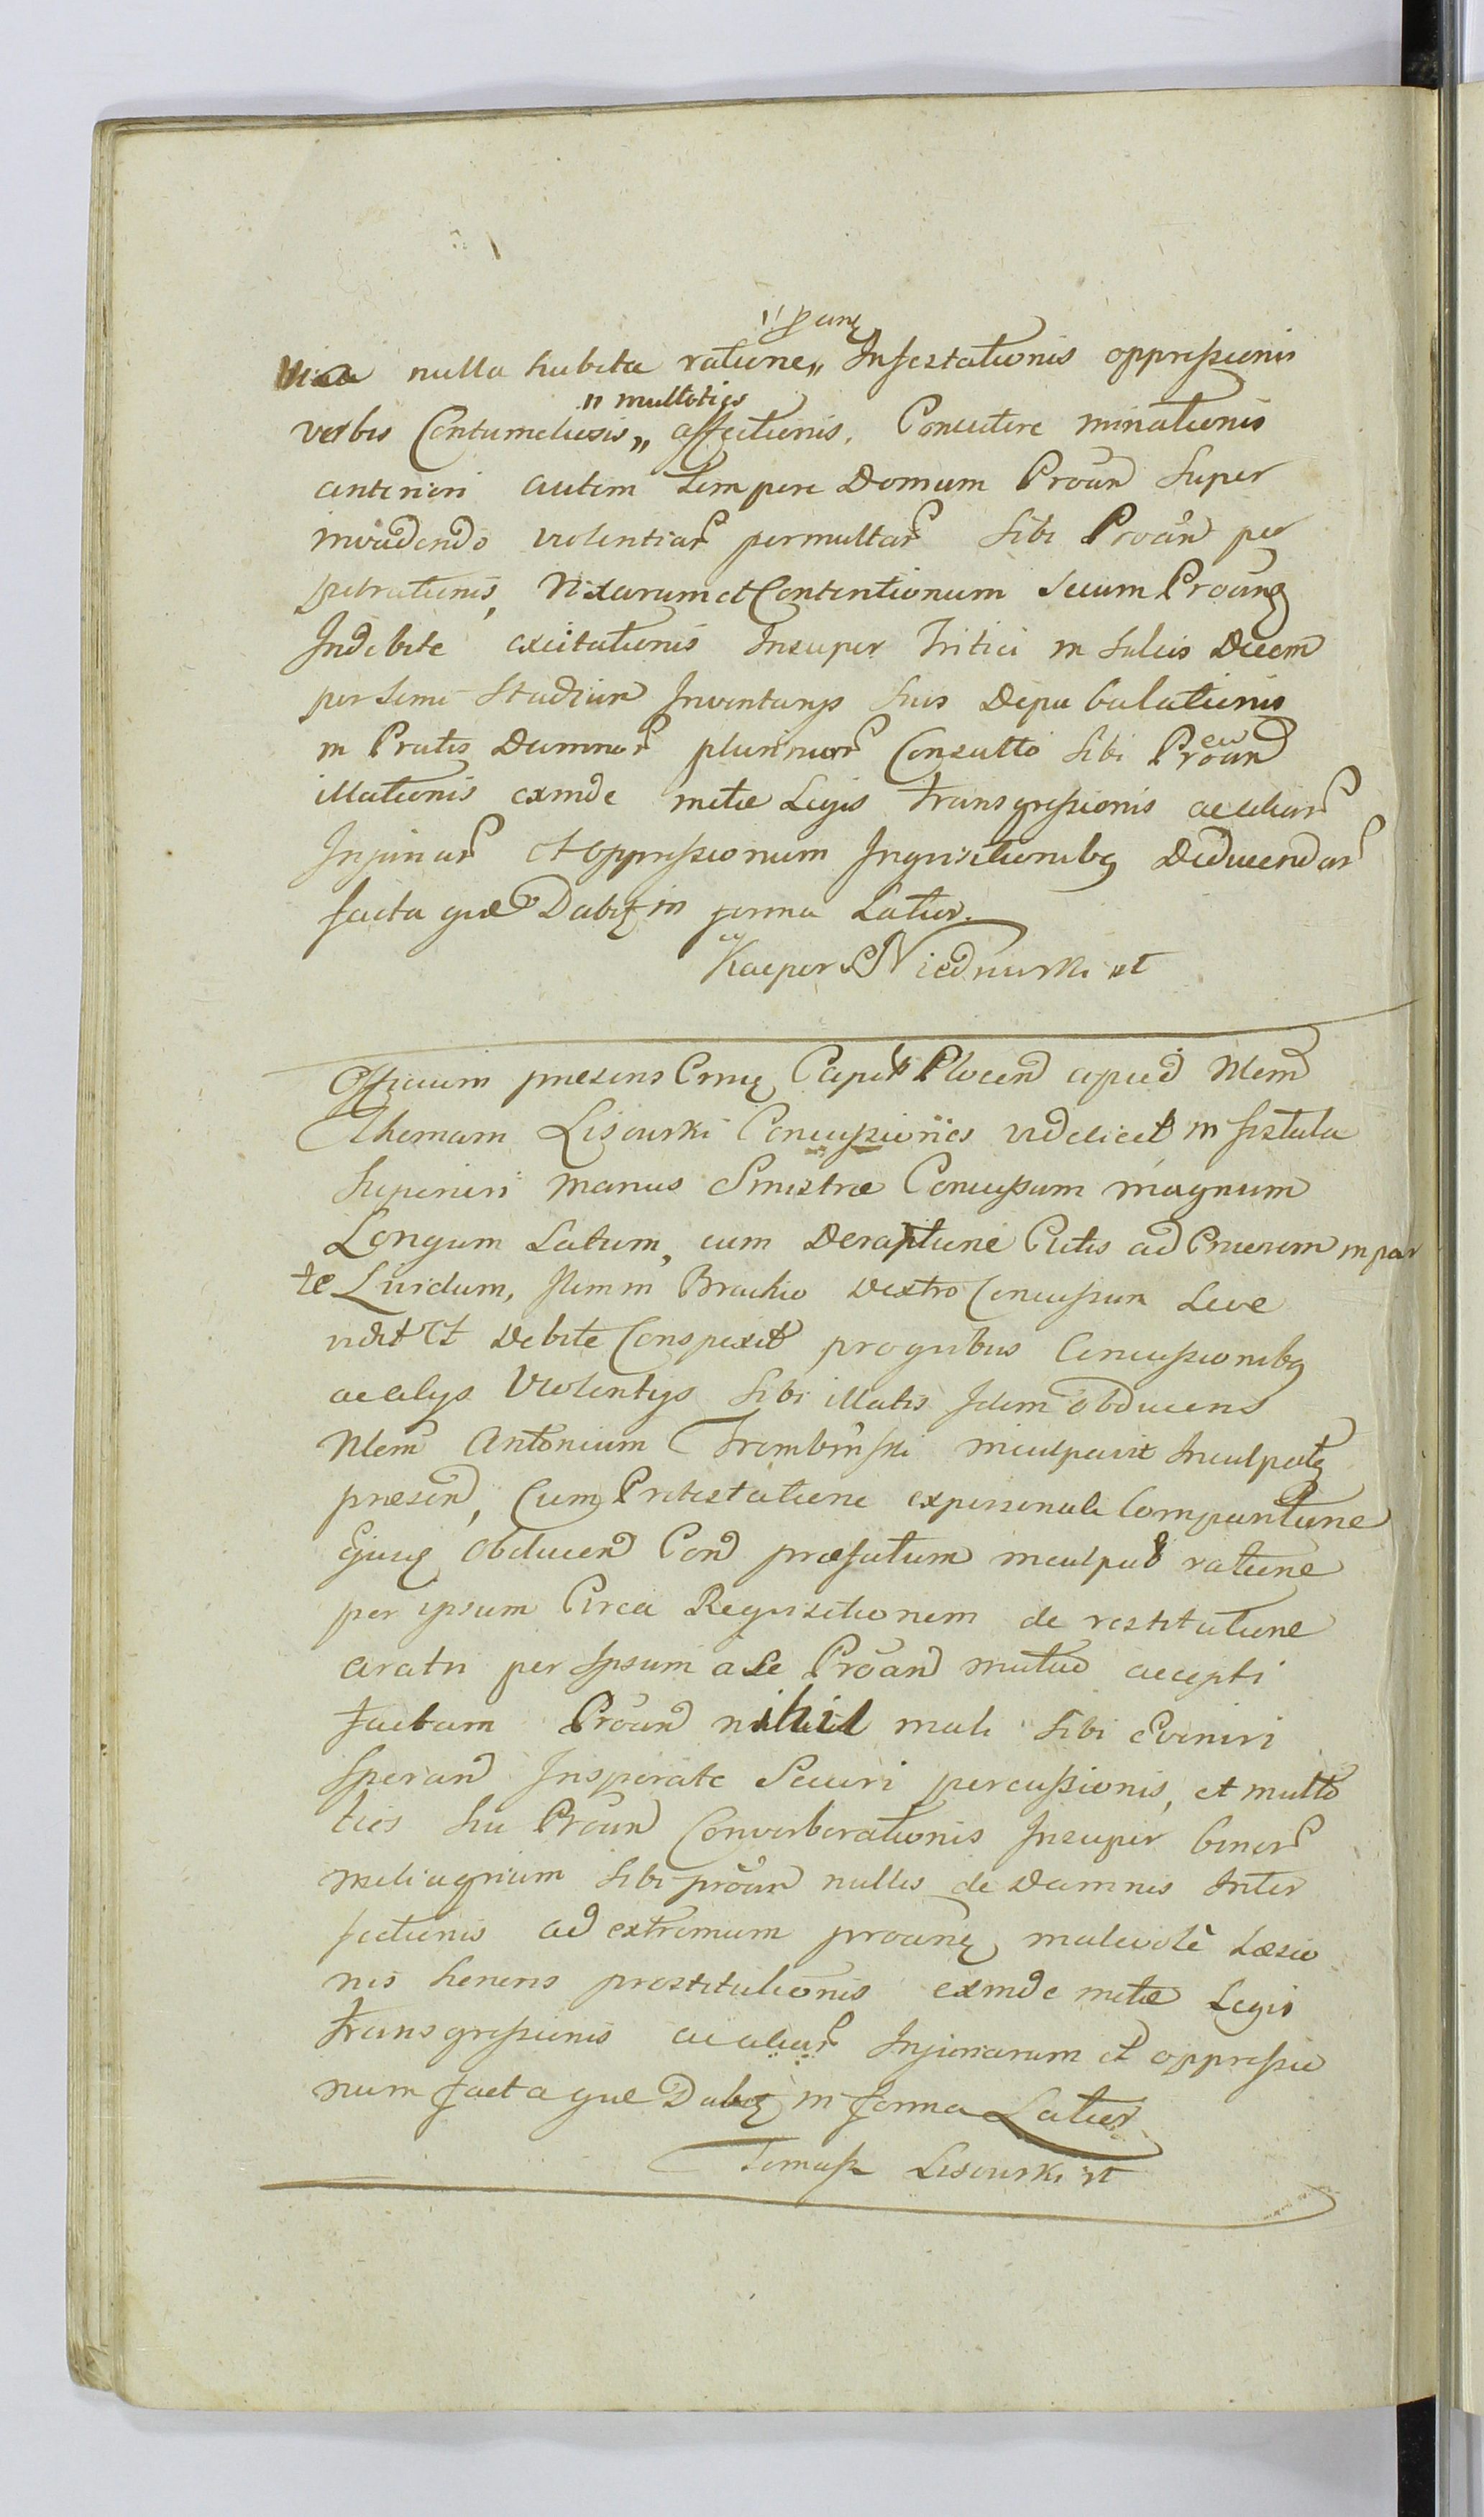 nulla habita ratione „ Infestationis oppressionis
verbis Contumeliosis „ affectionis, Concutere minationis
„ multoties
anteriori autem tempore Domum Proãn Super
invadendo violentiar permultar sibi Proãn per
petrationis, Rixarum et Contentionum secum Proãnq
Indebite excitationis Insuper Tritici in Sulcis Decem
per semi Stadium Inventarys suis Depabulationis
in Pratis Damnor plurimor Consulto sibi Proãn
illationis exinde metæ Legis transgressionis ac aliar
Injuriar et oppressionum Inquisitionibq Deducendar
facta quæ Dabit in forma Latior.
Kacper Niedrwiski
Officium præsens Capit Plocen apud Nlem
Thomam Lisowski Concussiones videlicet in fistula
superiori manus Sinistræ Concussum magnum
Longum Latum, cum Deraptione Cutis ad Cruorem in par
te Lividum, Item in Brachio Dextro Concussum Leve
vidit et Debite Conspexit pro quibus Concussionibq
ac alys Violentys sibi illatis Idem obducens
Nlem Antonium Trembinski inculpavit Inculpatq
præsen, Cum Protestatione ex personali Comparitione
ejusq obducen Con præfatum inculpat ratione
per ipsum Circa Requisitionem de restitutione
aratri per Ipsum a Se Proãn mutuo accepti
factam Proãn nihil mali sibi Eveniri
Speran Insperate Securi percussionis, et multo
ties hic Proãn Converberationis Insuper binor
meliagrium sibi proãn nullis de Damnis Inter
fectionis ad extremum proãnq malevolè Læsio
nis honoris prostitutionis exinde metæ Legis
transgressionis ac aliar Injuriarum et oppressio
num facta quæ Dabit in forma Latior
Tomasz Lisowski